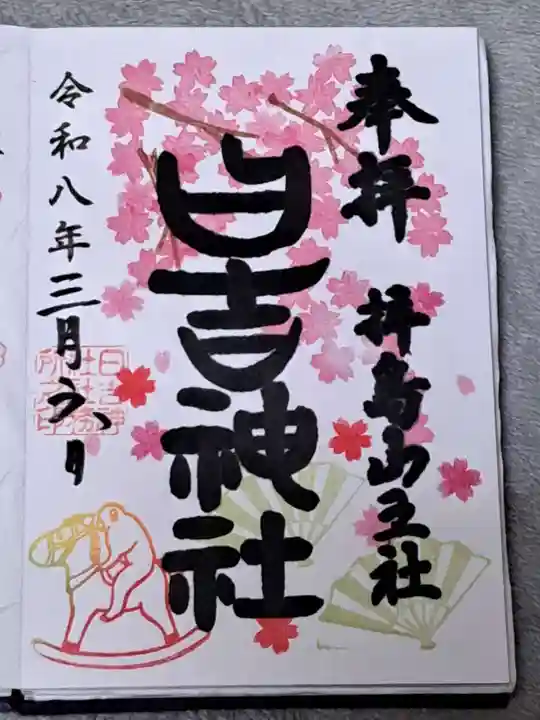 奉拝
拝島山王社
日吉神社
令和八年三月六日
日吉神
社社務
所之印